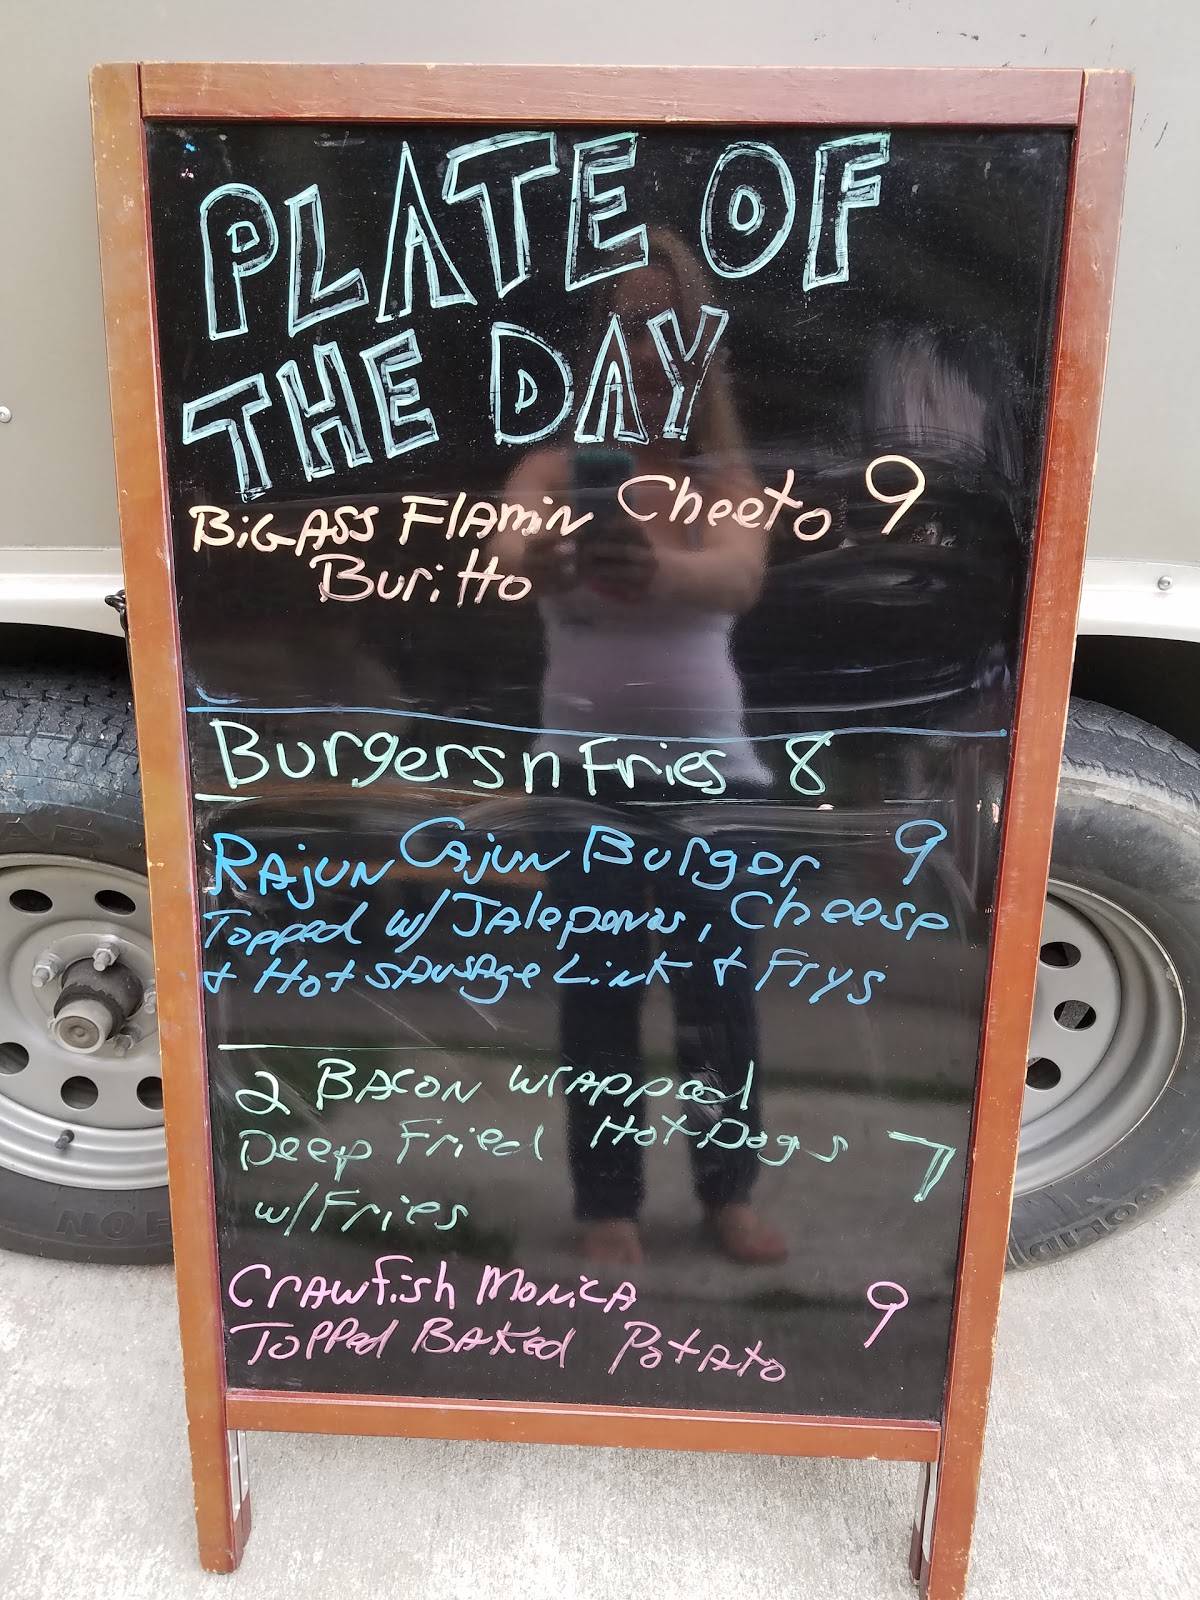 PLATE OF
THE DAY
BiG ASS FlAmin Cheeto 9
Buritto
Burgers n Fries 8
RAjuN CAjuN Burger 9
Topped w/ JAlepenos, Cheese
+ Hot sAusAge Link + Frys
2 BACON wrApped
Deep Fried Hot Dogs 7
w/ Fries
CrAwfish MoNicA 9
Topped BAKed PotAto